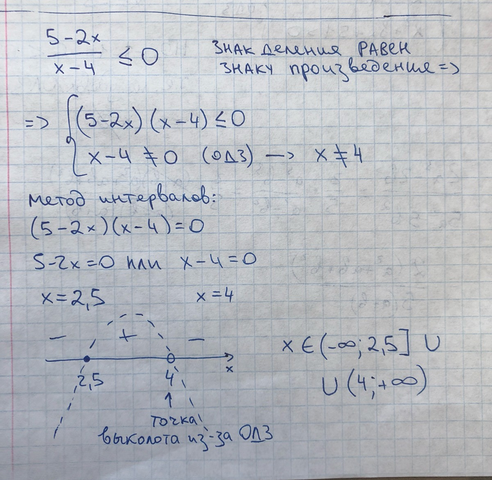 (5-2x)/(x-4) ≤ 0
знак деления равен
знаку произведения =>
=> { (5-2x)(x-4) ≤ 0
x-4 ≠ 0 (ОДЗ) → x ≠ 4
метод интервалов:
(5-2x)(x-4)=0
5-2x=0 или x-4=0
x=2,5 x=4
- + -
2,5 4 x
x ∈ (-∞; 2,5] ∪
∪ (4; +∞)
точка
выколота из-за ОДЗ